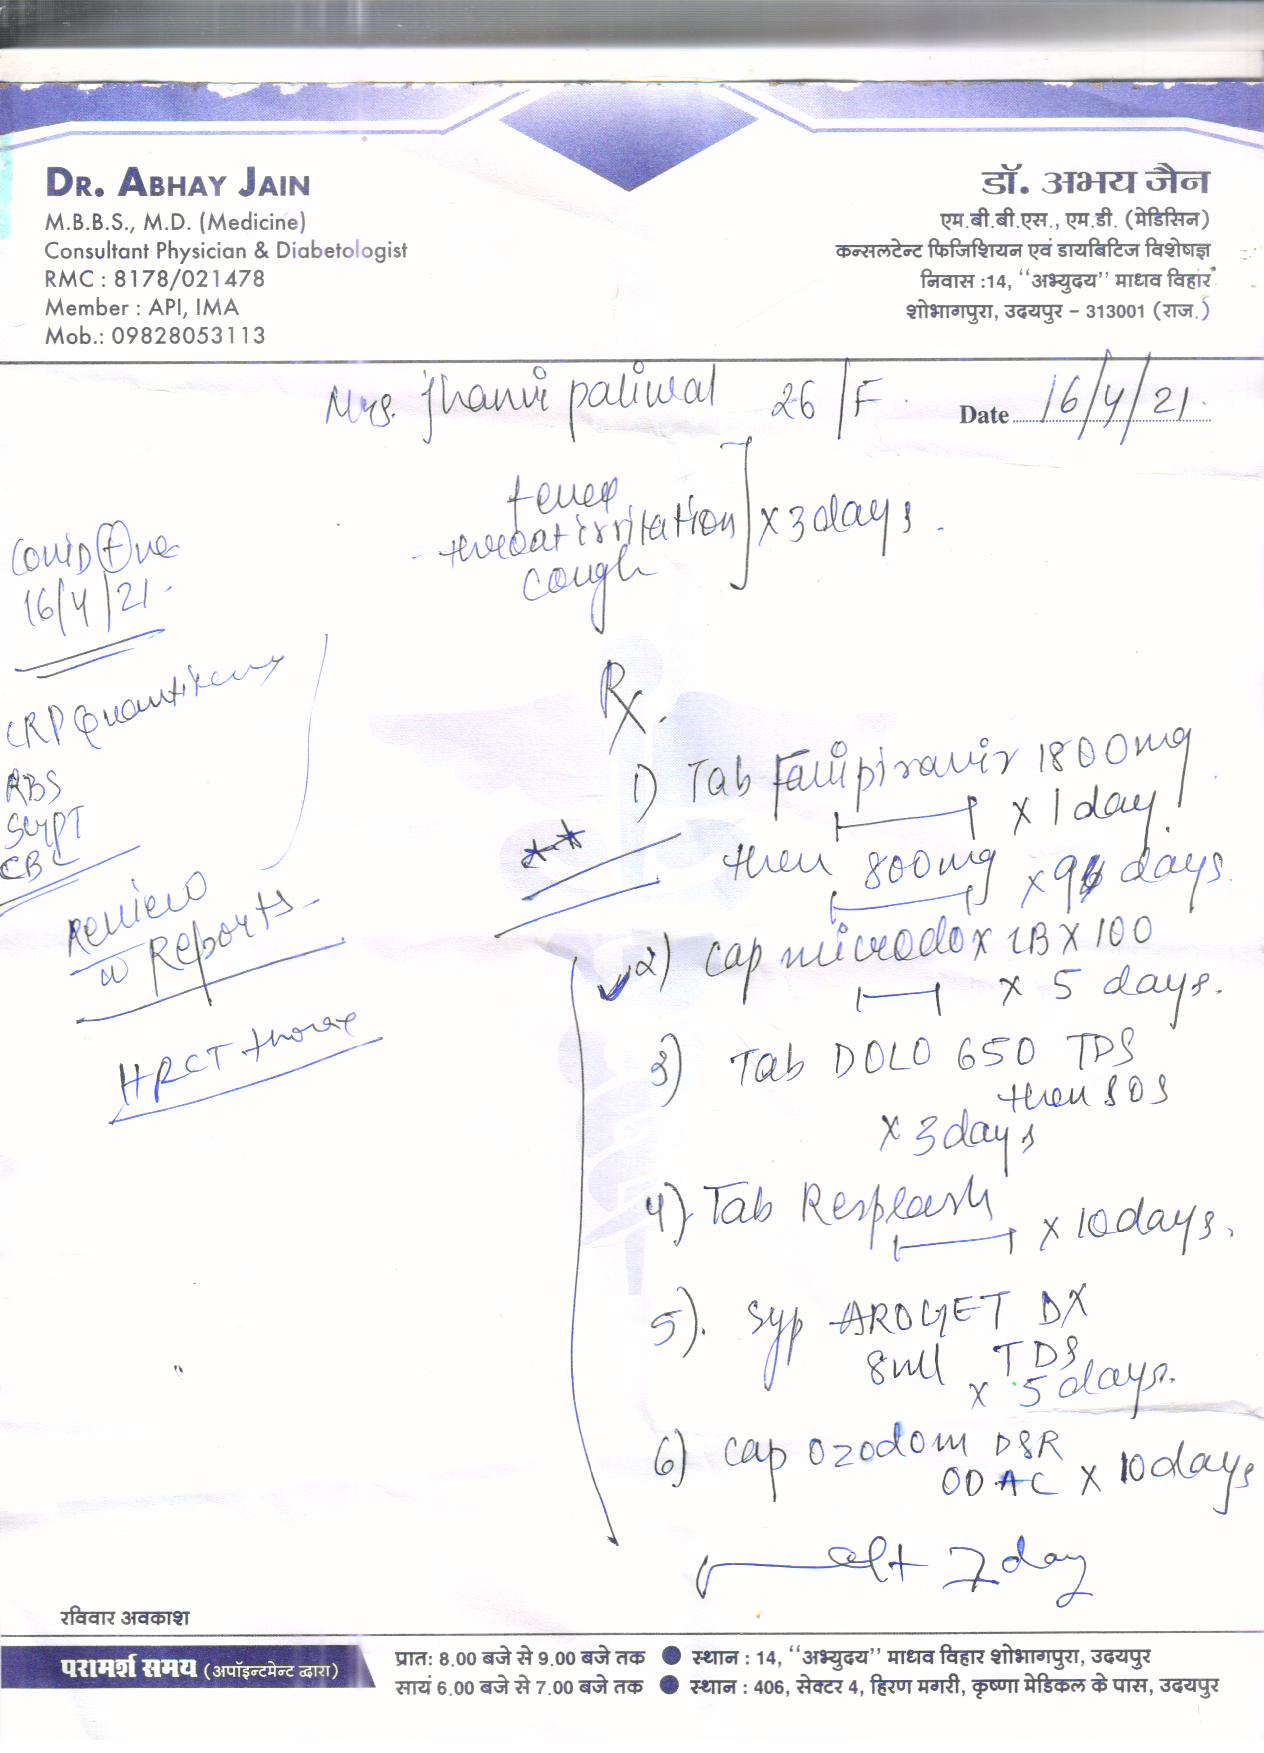 DR. ABHAY JAIN
M.B.B.S., M.D. (Medicine)
Consultant Physician & Diabetologist
RMC : 8178/021478
Member : API, IMA
Mob.: 09828053113
डॉ. अभय जैन
एम.बी.बी.एस., एम.डी. (मेडिसिन)
कन्सलटेन्ट फिजिशियन एवं डायबिटिज विशेषज्ञ
निवास :14, ‘‘अभ्युदय’’ माधव विहार
शोभागपुरा, उदयपुर – 313001 (राज.)
Mrs. Jhanvi paliwal 26/F.
Date 16/4/21.
fever
throat irritation
cough
x 3 days.
Covid +ve
16/4/21.
CRP Quantitative
RBS
SGPT
CBC
Review
w Reports
HRCT thorax
Rx.
1) Tab Favipiravir 1800mg
x 1 day
then 800mg x 9 days.
2) Cap microdox LB x 100
x 5 days.
3) Tab DOLO 650 TDS
then SOS
x 3 days
4) Tab Resplash x 10 days.
5). Syp AROGET DX
8ml TDS
x 5 days.
6) Cap OZODOM DSR
OD AC x 10 days
7 day
रविवार अवकाश
परामर्श समय (अपॉइन्टमेन्ट द्वारा)
प्रात: 8.00 बजे से 9.00 बजे तक ● स्थान : 14, ‘‘अभ्युदय’’ माधव विहार शोभागपुरा, उदयपुर
सायं 6.00 बजे से 7.00 बजे तक ● स्थान : 406, सेक्टर 4, हिरण मगरी, कृष्णा मेडिकल के पास, उदयपुर